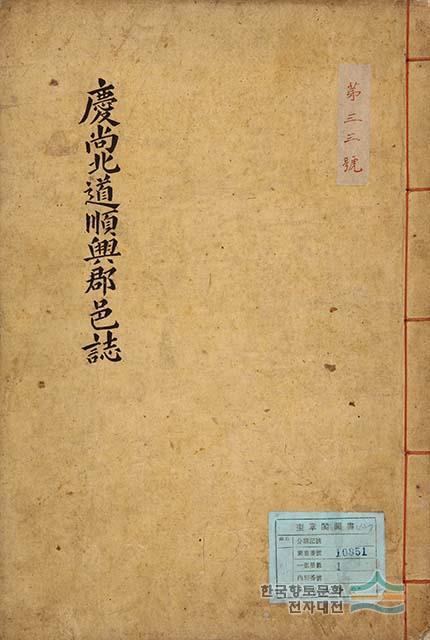 慶尚北道順興郡邑誌
第三三號
奎章閣圖書
10851
1
한국향토문화
전자대전